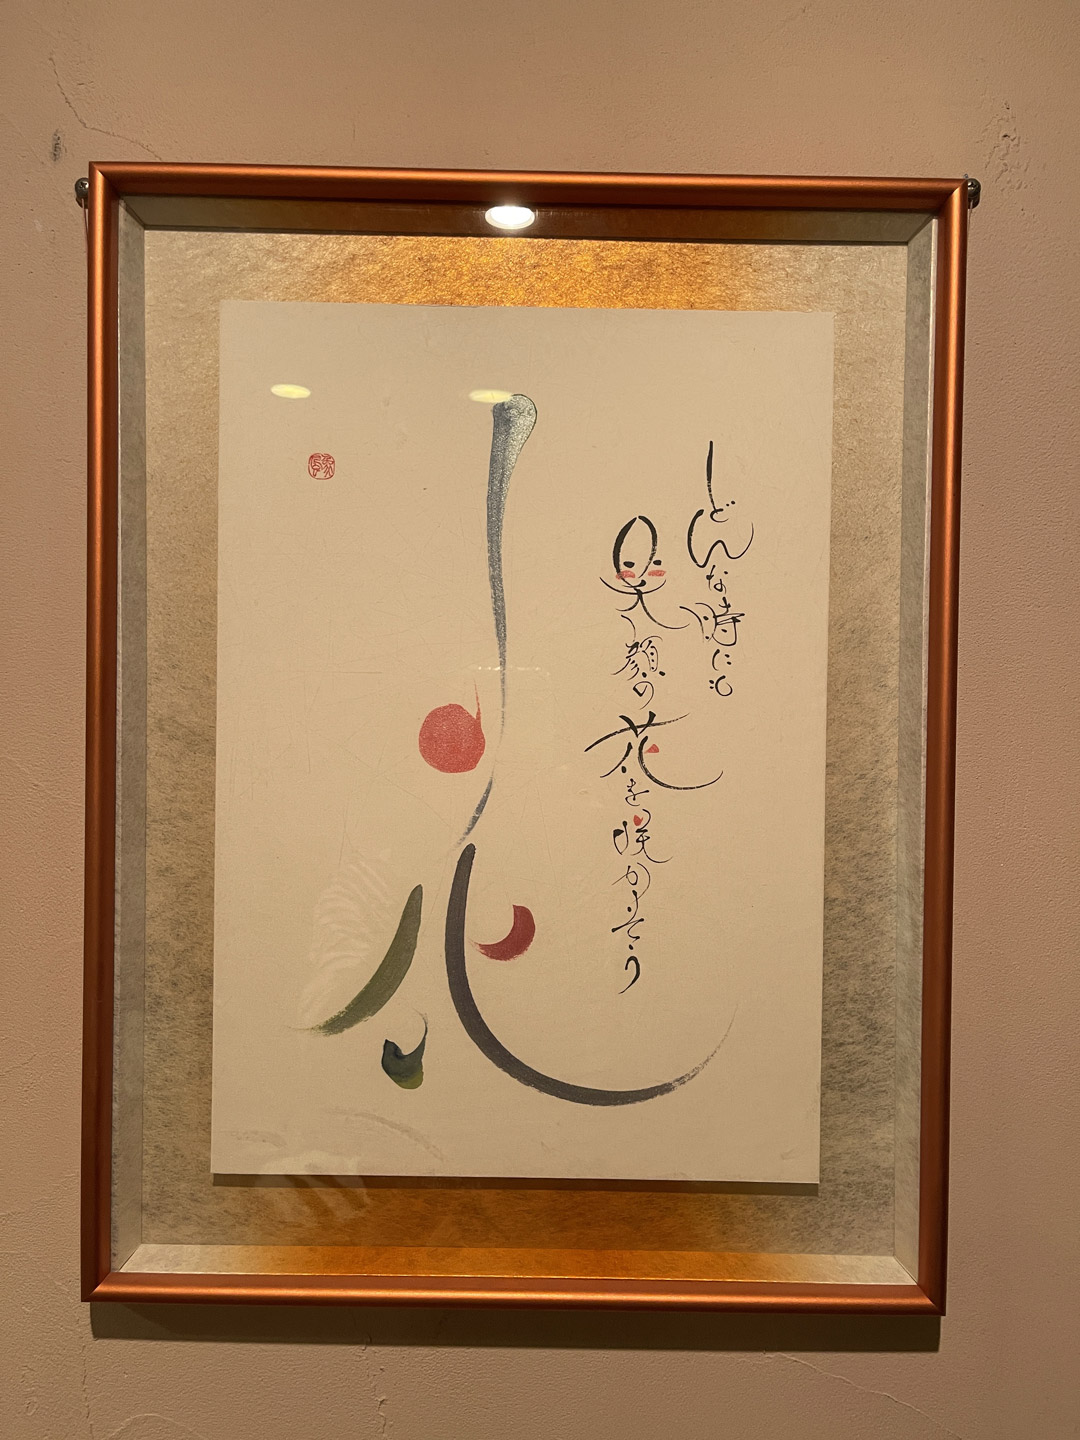 どんな時にも
笑顔の花を咲かそう
花